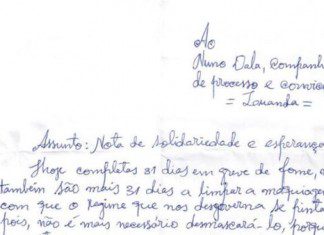 Ao
Nuno Dala, companh
de processo e convic
= Luanda =
Assunto: Nota de solidariedade e esperança
Hoje completas 31 dias em greve de fome, e
também são mais 31 dias a limpar a maquiagem
com que o regime que nos desgoverna se pinta
pois, não é mais necessário desmascará-lo, porque